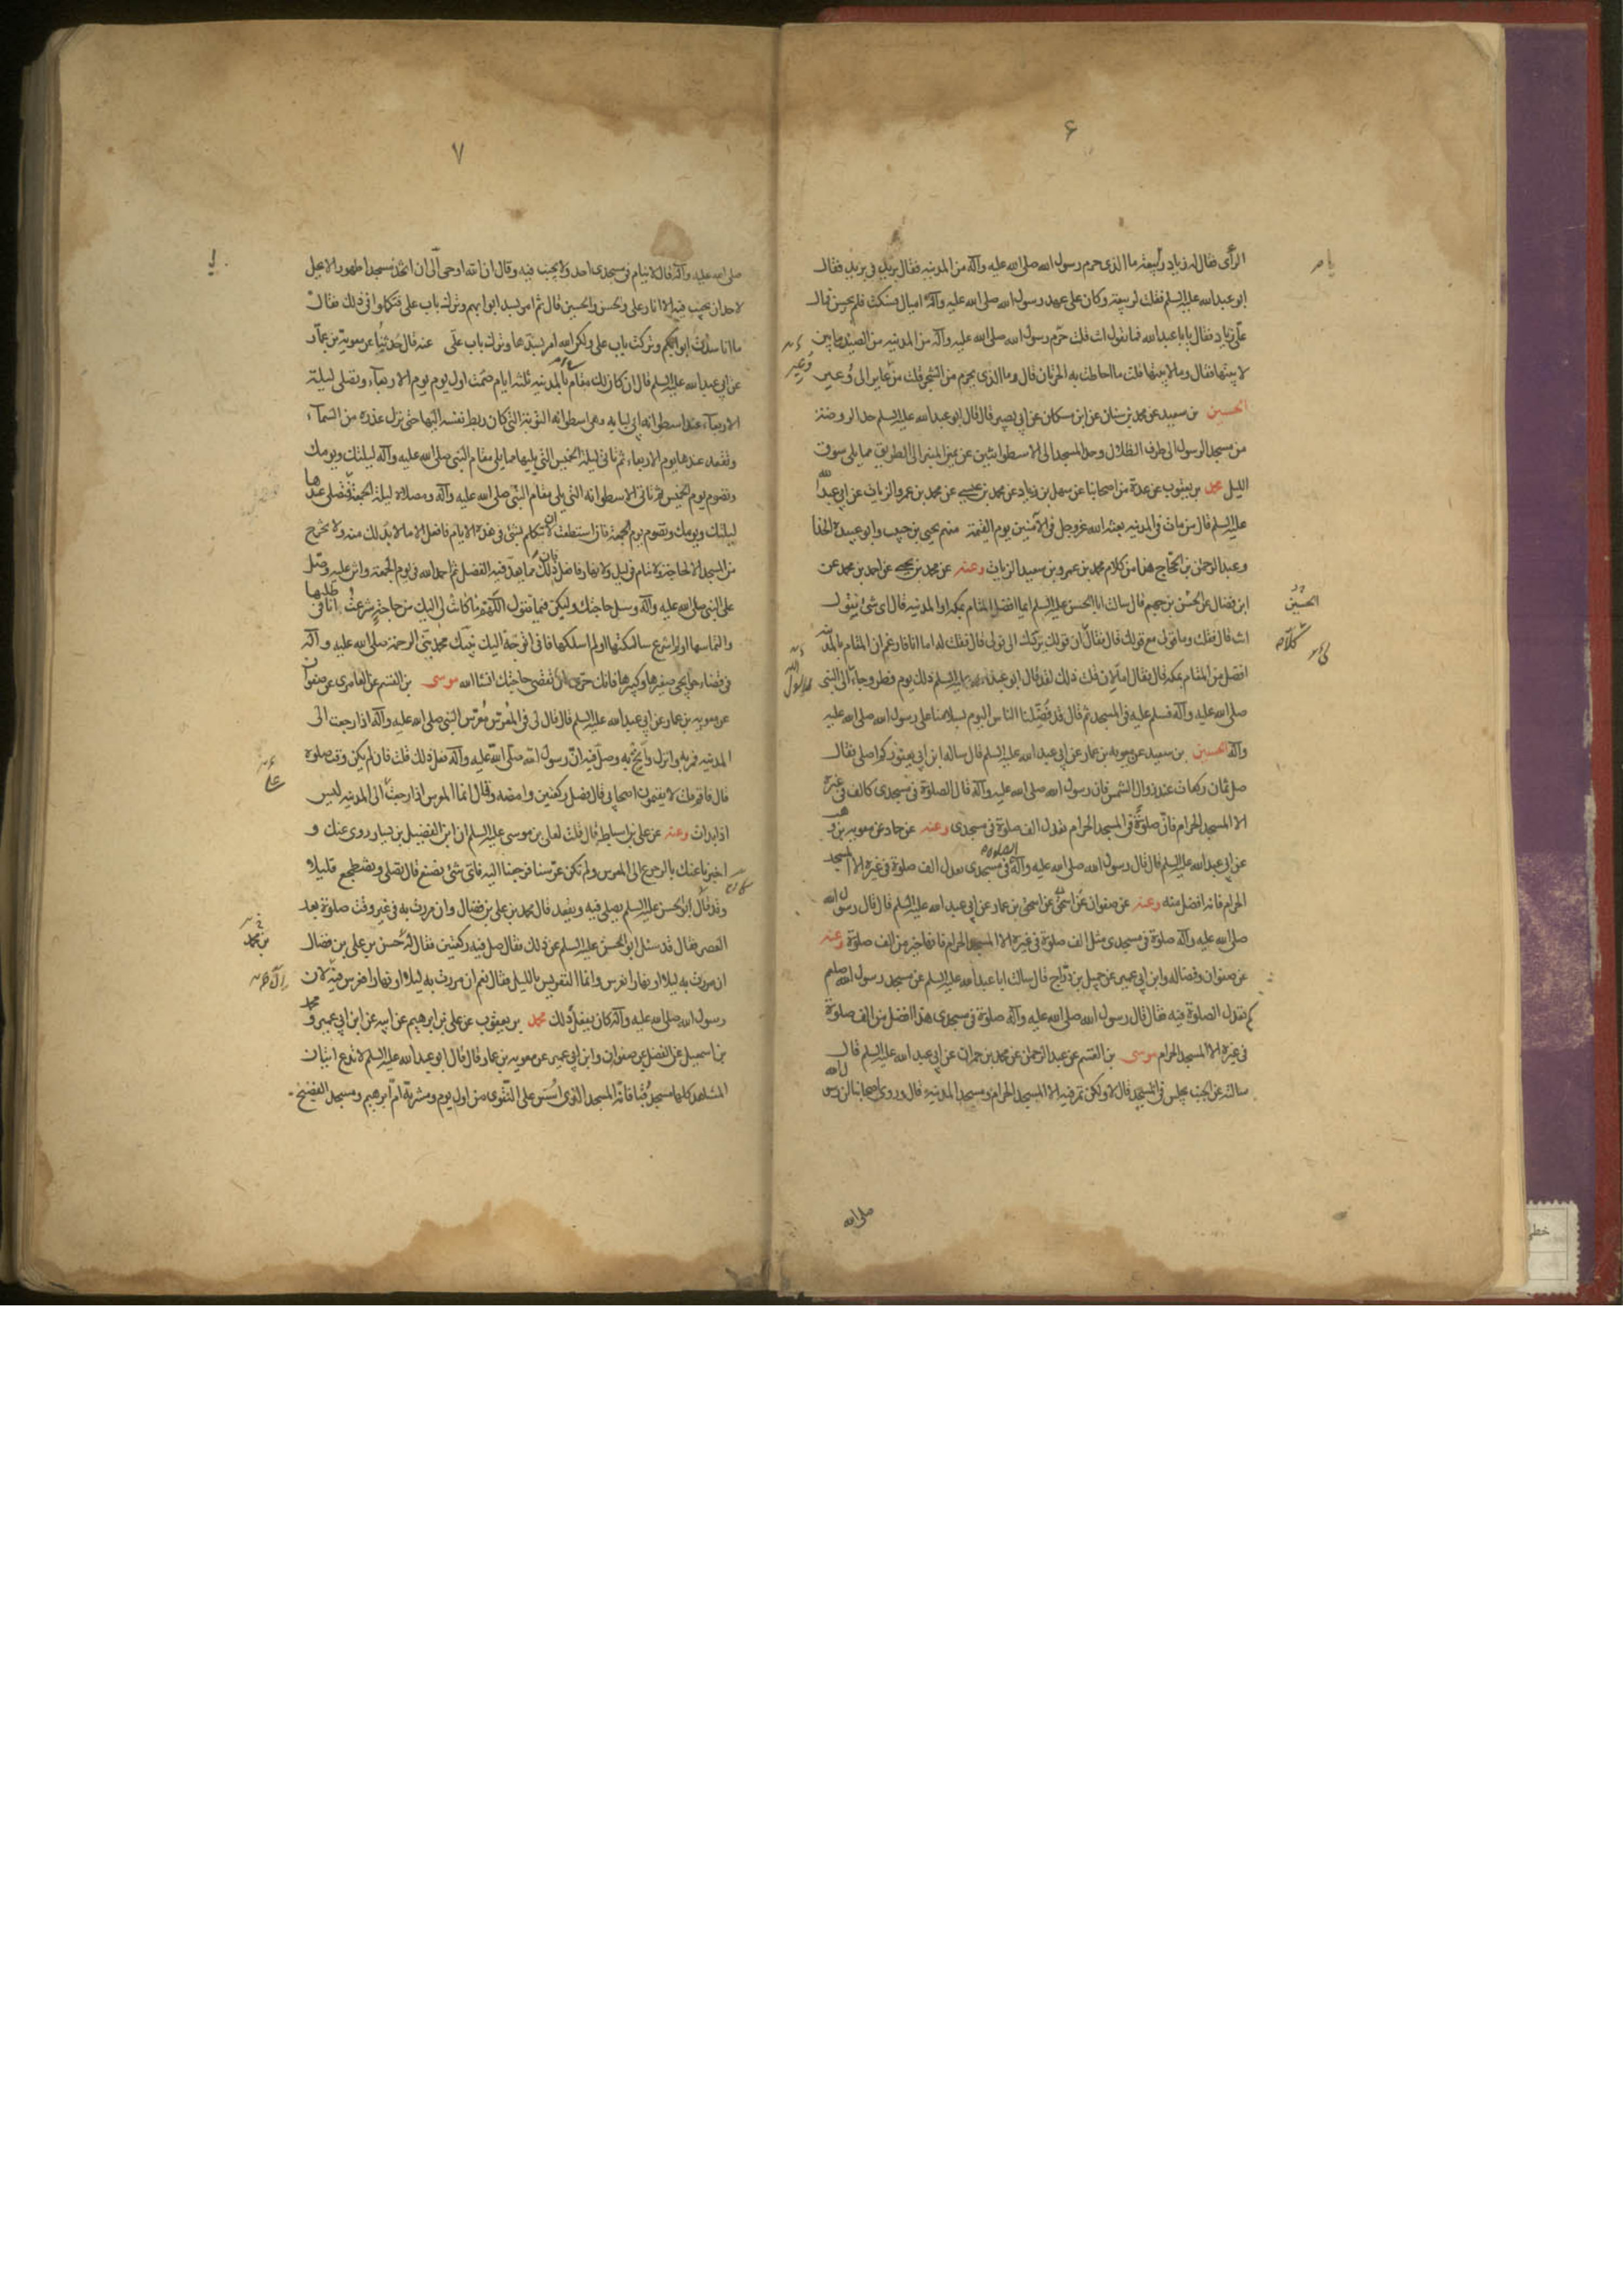 ۶
الرأى فقال له زياد ربيعة ما الذى حرم رسول الله صلى الله عليه وآله من المدينة فقال بريد فى بريد فقال
ابو عبدالله عليه السلم فقلت لربيعة وكان على عهد رسول الله صلى الله عليه وآله اميال فسكت فلم يحسن فمال
علىّ زياد فقال يابا عبدالله فما تقول انت قلت حرّم رسول الله صلى الله عليه وآله من المدينة من الصيد ما بين
لابيتها فقال وما لابيتها قلت ما احاطت به الحرتان قال وما الذى يحرم من الشجر قلت من عاير الى وُعير
الحسين بن سعيد عن محمد بن سنان عن ابن مسكان عن ابى بصير قال قال ابو عبدالله عليه السلم حد الروضة
من مسجد الرسول الى طرف الظلال وحد المسجد الى الاسطوانتين عن يمين المنبر الى الطريق مما يلى سوق
الليل محمد بن يعقوب عن عدة من اصحابنا عن سهل بن زياد عن محمد بن عيسى عن محمد بن عمرو الزيات عن ابى عبدالله
عليه السلم قال من مات فى المدينة بعثه الله عزوجل فى الآمنين يوم القيمة منهم يحيى بن حبيب وابو عبيدة الحذا
وعبد الرحمن بن الحجاج هذا من كلام محمد بن عمرو بن سعيد الزيات وعنه عن محمد بن يحيى عن احمد بن محمد عن
ابن فضال عن الحسن بن جهم قال سالت ابا الحسن عليه السلم ايما افضل المقام بمكة او المدينة قال اى شئ تقول
انت قال فقلت وما قولى مع قولك قال فقال ان قولك يردك الى قولى قال فقلت له اما انا فازعم ان المقام بالمدينة
افضل من المقام بمكة قال فقال اما لان قلت ذلك لقد قال ابو عبدالله عليه السلم ذلك يوم فطر وجاء الى النبى
صلى الله عليه وآله فسلم عليه فى المسجد ثم قال قد فضّلنا الناس اليوم بسلامنا على رسول الله صلى الله عليه
وآله الحسين بن سعيد عن معوية بن عمار عن ابى عبد الله عليه السلم قال ساله ابن ابى يعفور كم اصلى فقال
صل ثمان ركعات عند زوال الشمس فان رسول الله صلى الله عليه وآله قال الصلوة فى مسجدى كالف فى غيره
الا المسجد الحرام فانّ صلوةً فى المسجد الحرام تعدل الف صلوة فى مسجدى وعنه عن حماد عن معوية بن وهب
عن ابى عبدالله عليه السلم قال قال رسول الله صلى الله عليه وآله الصلوة فى مسجدى تعدل الف صلوة فى غيره الا المسجد
الحرام فانه افضل منه وعنه عن صفوان عن اسحق عن اسحق بن عمار عن ابى عبد الله عليه السلم قال قال رسول الله
صلى الله عليه وآله صلوة فى مسجدى مثل الف صلوة فى غيره الا المسجد الحرام فانها خير من الف صلوة وعنه
عن صفوان وفضالة وابن ابى عمير عن جميل بن دراج قال سالت ابا عبدالله عليه السلم عن مسجد رسول الله صلعم
كم تعدل الصلوة فيه فقال قال رسول الله صلى الله عليه وآله صلوة فى مسجدى هذا افضل من الف صلوة
فى غيره الا المسجد الحرام موسى بن القسم عن عبد الرحمن عن محمد بن حمران عن ابى عبد الله عليه السلم قال
سالته عن الجنب يجلس فى المسجد قال لا ولكن تمر فيه الا المسجد الحرام ومسجد المدينة قال وروى اصحابنا ان رسول الله
صلى الله
۷
صلى الله عليه وآله قال لا ينام فى مسجدى احد ولا يجنب فيه وقال ان الله اوحى الىّ ان اتخذ مسجدا طهورا لا يحل
لاحد ان يجنب فيه الا انا وعلى والحسن والحسين قال ثم امر بسد ابوابهم وترك باب على فتكلموا فى ذلك فقال
ما انا سددت ابوابكم وتركت باب على ولكن الله امر بسدها وترك باب على عنه قال حدثنا عن معوية بن عمّار
عن ابى عبدالله عليه السلم قال ان كان لك مقام بالمدينة ثلثة ايام صمت اول يوم يوم الاربعاء وتصلى ليلة
الاربعاء عند اسطوانة ابى لبابه وهى اسطوانة التوبة التى كان ربط نفسه اليها حتى نزل عذره من السماء
وتقعد عندها يوم الاربعاء ثم تاتى ليلة الخميس التى يليها مما يلى مقام النبى صلى الله عليه وآله ليلتك ويومك
وتصوم يوم الخميس ثم تاتى الاسطوانة التى يلى مقام النبى صلى الله عليه وآله ومصلاه ليلة الجمعة فتصلى عندها
ليلتك ويومك وتصوم يوم الجمعة فان استطعت ان لا تتكلم بشئ فى هذه الايام فافعل الا ما لا بد لك منه ولا تخرج
من المسجد الا لحاجة ولا تنام فى ليل ولا نهار فافعل فان ذلك مما يعد فيه الفضل ثم احمد الله فى يوم الجمعة واثن عليه وصل
على النبى صلى الله عليه وآله وسل حاجتك وليكن فيما تقول اللهم ما كانت لى اليك من حاجة شرعت انا فى طلبها
والتماسها او لم اشرع سالتكها او لم اسلكها فانى اتوجه اليك بنبيك محمد نبى الرحمة صلى الله عليه وآله
فى قضاء حوايجى صغيرها وكبيرها فانك حرىّ ان تقضى حاجتك انشا الله موسى بن القسم عن العامرى عن صفوان
عن معوية بن عمار عن ابى عبدالله عليه السلم قال قال لى فى المعرّس مُعرّس النبى صلى الله عليه وآله اذا رجعت الى
المدينة فمر به وانزل وانخ به وصل فيه انّ رسول الله صلى الله عليه وآله فعل ذلك قلت فان لم يكن وقت صلوة
قال فاقم قلت لا يقيمون اصحابى قال فصل ركعتين وامضه وقال انما المعرس اذا رجعت الى المدينة ليس
اذا بدات وعنه عن على بن اسباط قال قلت لعلى بن موسى عليه السلم ان ابن الفضيل بن يسار روى عنك و
اخبرنا عنك بالرجوع الى المعرس ولم نكن عرّسنا فرجعنا اليه فاىّ شئ نصنع قال تصلى وتضطجع قليلا
وقد كان ابو الحسن عليه السلم يصلى فيه ويقعد قال محمد بن على بن فضال وان مررت به فى غير وقت صلوة بعد
العصر فقال قد سئل ابو الحسن عليه السلم عن ذلك فقال صل فيه ركعتين فقال له حسن بن على بن فضال
ان مررت به ليلا او نهارا نعرس وانما التعريس بالليل فقال نعم ان مررت به ليلا او نهارا فعرس فيه لان
رسول الله صلى الله عليه وآله كان يفعل ذلك محمد بن يعقوب عن على بن ابرهيم عن ابيه عن ابن ابى عمير و محمد
بن اسمعيل عن الفضل عن صفوان وابن ابى عمير عن معوية بن عمار قال قال ابو عبد الله عليه السلم لا تدع اتيان
المشاهد كلها مسجد قُبا فانه المسجد الذى اُسّس على التقوى من اول يوم ومشربة امّ ابرهيم ومسجد الفضيخ